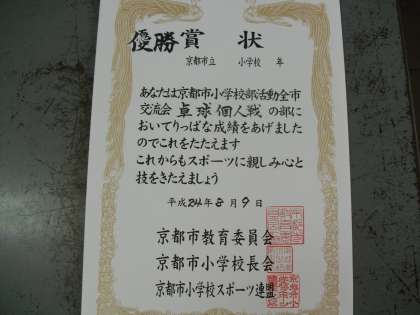 優勝賞 状
京都市立 小学校 年
あなたは京都市小学校部活動全市
交流会 卓球個人戦 の部に
おいてりっぱな成績をあげました
のでこれをたたえます
これからもスポーツに親しみ心と
技をきたえましょう
平成24年8月9日
京都市教育委員会
京都市小学校長会
京都市小学校スポーツ連盟